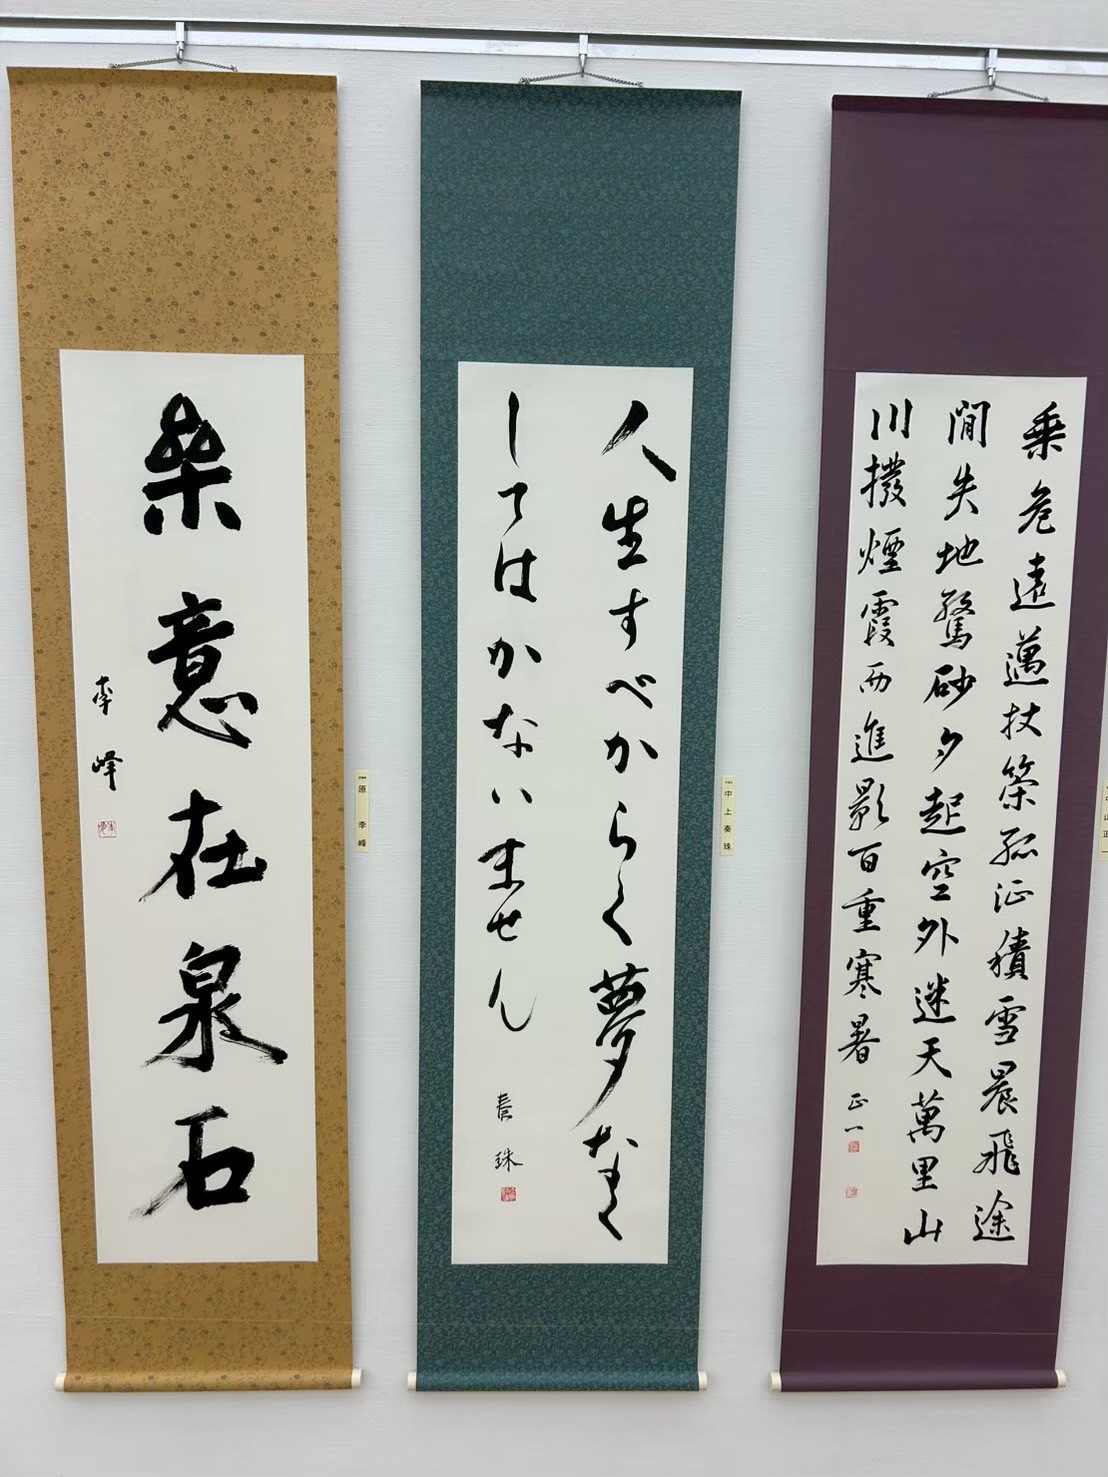 乗危遠邁杖策孤征積雪晨飛途
間失地驚砂夕起空外迷天萬里山
川撥煙霞而進影百重寒暑
正一
人生すべからく夢なく
してはかないません
春珠
中上奏珠
樂意在泉石
李峰
原李峰